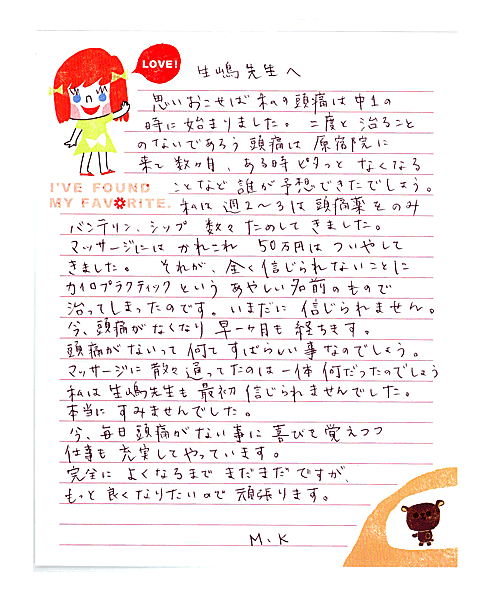 LOVE!
生嶋先生へ
思いおこせば私の頭痛は中1の
時に始まりました。二度と治ること
のないであろう頭痛は原宿院に
来て数ヶ月、ある時ピタっとなくなる
I'VE FOUND
MY FAVORITE.
ことなど誰が予想できたでしょう。
私は週2〜3は頭痛薬をのみ
バンテリン、シップ数々ためしてきました。
マッサージにはかれこれ50万円はついやして
きました。それが、全く信じられないことに
カイロプラクティックというあやしい名前のもので
治ってしまったのです。いまだに信じられません。
今、頭痛がなくなり早一ヶ月も経ちます。
頭痛がないって何てすばらしい事なのでしょう。
マッサージに散々通ってたのは一体何だったのでしょう
私は生嶋先生も最初信じられませんでした。
本当にすみませんでした。
今、毎日頭痛がない事に喜びを覚えつつ
仕事も充実してやっています。
完全によくなるまでまだまだですが、
もっと良くなりたいので頑張ります。
M.K